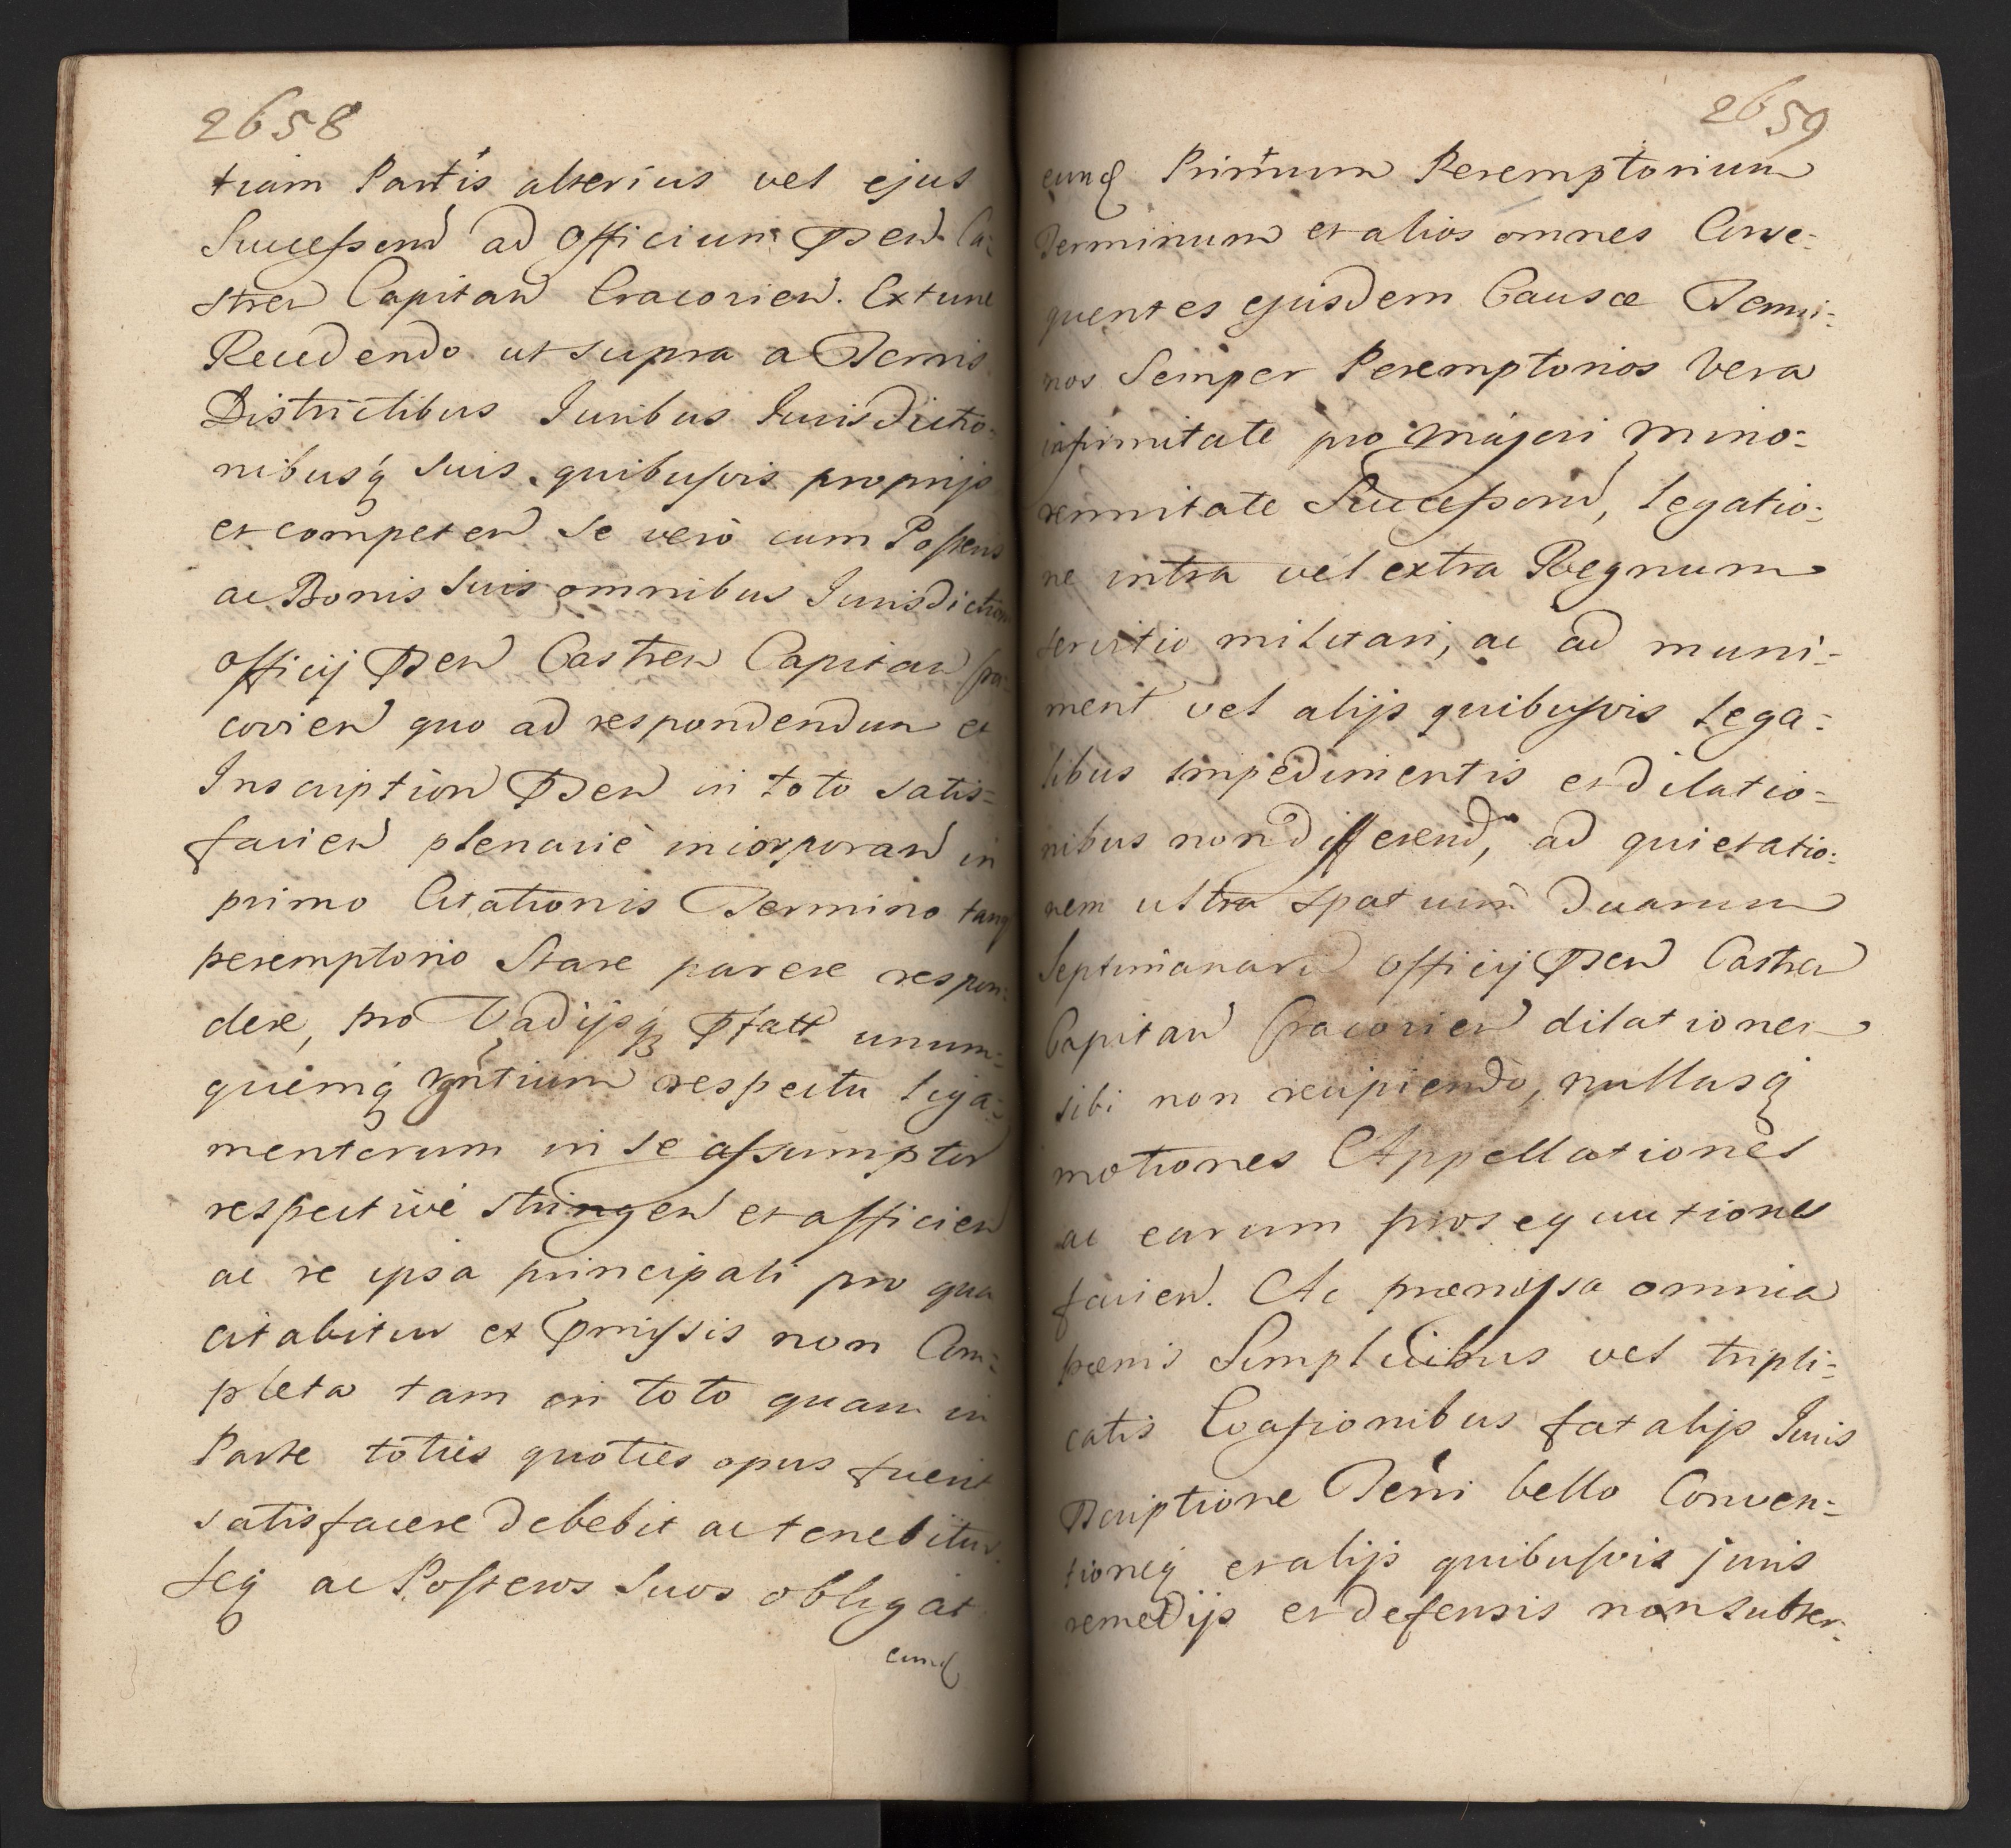 2658
tiam Partis alterius vel ejus
Successorũ ad Officium Psen Ca=
stren Capitan Cracovien. Extunc
Recedendo ut supra a Terris
Districtibus Juribus Jurisdictio=
nibusq suis quibusvis proprijs
et competen se verò cum Posteris
ac Bonis Suis omnibus Jurisdictioni
Officij Psen Castren Capitan Cra=
covien quo ad respondendum et
Inscription Psen in toto satis=
facien plenariè incorporan in
primo Citationis Termino tanq
peremptorio Stare parere respon=
dere, pro Vadijsq Pfatt unum=
quemq rñtium respectu liga=
mentorum in se assumptor
respectivè stringen et afficien
ac re ipsa principali pro qua
citabitur et Pmissis non Com=
pleta tam in toto quam in
Parte toties quoties opus fuerit
satisfacere debebit ac tenebitur.
Seq ac Posteros Suos obligat
eund
2659
eunq Primum Peremptorium
Terminum et alios omnes Conse=
quentes ejusdem Causæ Termi=
nos Semper Peremptorios Vera
infirmitate pro majori mino=
rennitate Successorũ, legatio=
ne intra vel extra Regnum
servitio militari, ac ad muni=
ment vel alijs quibusvis lega=
libus impedimentis et dilatio=
nibus non differend, ad quietatio=
nem ultra spatium duarum
Septimanarũ Officij Psen Castren
Capitan Cracovien dilationes
sibi non recipiendo, nullasq
motiones Appellationes
ac earum prosequutiones
facien. Ac præmissa omnia
pænis Simplicibus vel tripli=
catis Evasionibus fatalijs Juris
Pscriptione Terri bello Conven=
tioneq et alijs quibusvis juris
remedijs et defensis non subter=